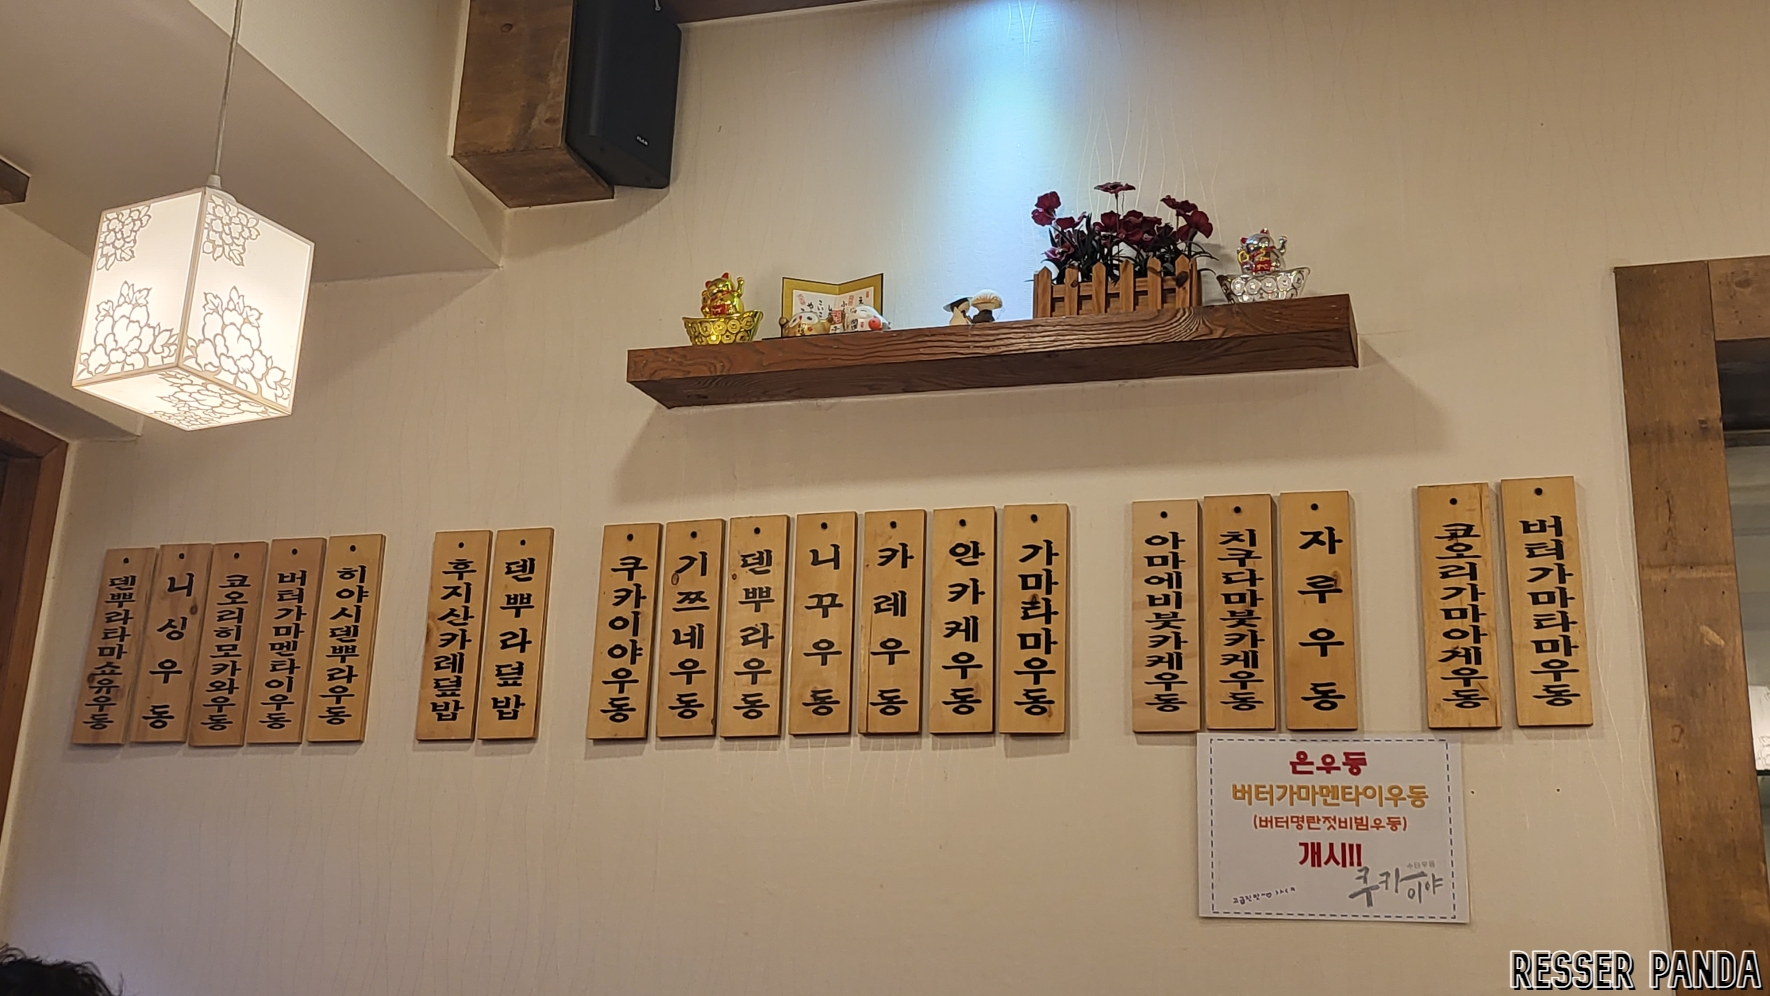 덴뿌라타마쇼유우동
니싱우동
코오리히모카와우동
버터가마멘타이우동
히야시덴뿌라우동
후지산카레덮밥
덴뿌라덮밥
쿠카이야우동
기쯔네우동
덴뿌라우동
니꾸우동
카레우동
안카케우동
가마타마우동
아마에비붓카케우동
치쿠다마붓카케우동
자루우동
코오리가마아게우동
버터가마타마우동
온우동
버터가마멘타이우동
(버터명란젓비빔우동)
개시!!
수타우동
쿠카이야
RESSER PANDA